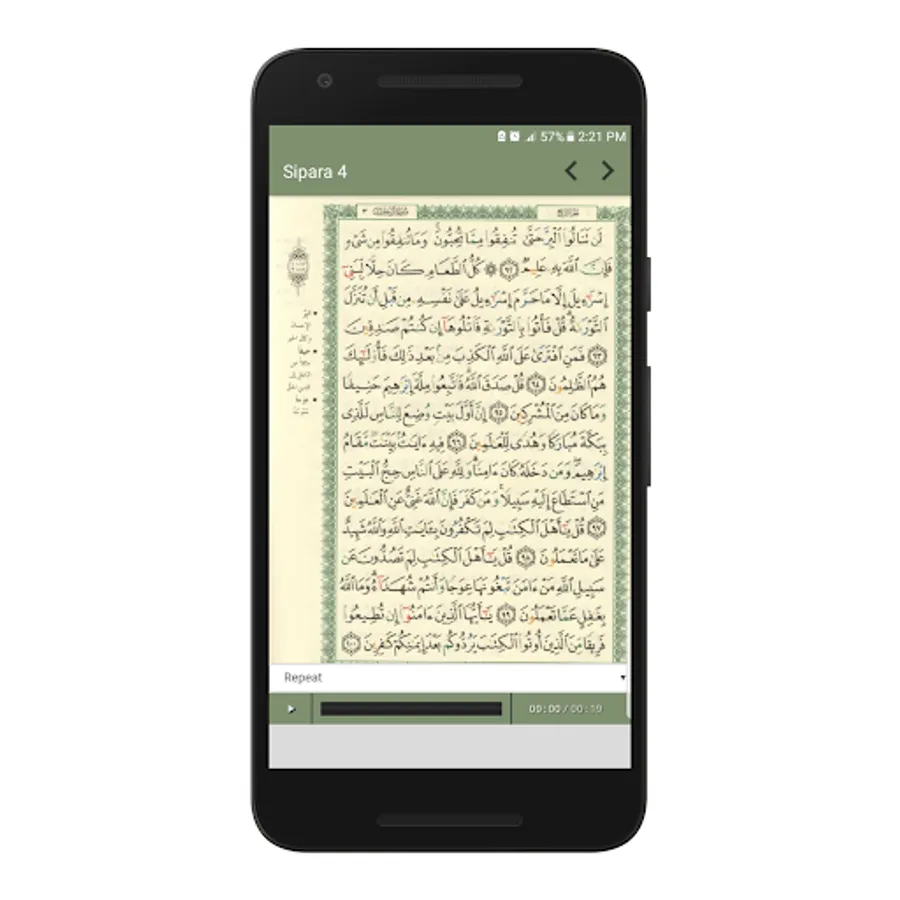 57% 2:21 PM
Sipara 4
لَن تَنَالُوا۟ ٱلْبِرَّ حَتَّىٰ تُنفِقُوا۟ مِمَّا تُحِبُّونَ ۚ وَمَا تُنفِقُوا۟ مِن شَىْءٍ
فَإِنَّ ٱللَّهَ بِهِۦ عَلِيمٌ ٩٢ ۞ كُلُّ ٱلطَّعَامِ كَانَ حِلًّا لِّبَنِىٓ
إِسْرَٰٓءِيلَ إِلَّا مَا حَرَّمَ إِسْرَٰٓءِيلُ عَلَىٰ نَفْسِهِۦ مِن قَبْلِ أَن تُنَزَّلَ
ٱلتَّوْرَىٰةُ ۗ قُلْ فَأْتُوا۟ بِٱلتَّوْرَىٰةِ فَٱتْلُوهَآ إِن كُنتُمْ صَـٰدِقِينَ
٩٣ فَمَنِ ٱفْتَرَىٰ عَلَى ٱللَّهِ ٱلْكَذِبَ مِنۢ بَعْدِ ذَٰلِكَ فَأُو۟لَـٰٓئِكَ
هُمُ ٱلظَّـٰلِمُونَ ٩٤ قُلْ صَدَقَ ٱللَّهُ ۗ فَٱتَّبِعُوا۟ مِلَّةَ إِبْرَٰهِيمَ حَنِيفًا
وَمَا كَانَ مِنَ ٱلْمُشْرِكِينَ ٩٥ إِنَّ أَوَّلَ بَيْتٍ وُضِعَ لِلنَّاسِ لَلَّذِى
بِبَكَّةَ مُبَارَكًا وَهُدًى لِّلْعَـٰلَمِينَ ٩٦ فِيهِ ءَايَـٰتٌۢ بَيِّنَـٰتٌ مَّقَامُ
إِبْرَٰهِيمَ ۖ وَمَن دَخَلَهُۥ كَانَ ءَامِنًا ۗ وَلِلَّهِ عَلَى ٱلنَّاسِ حِجُّ ٱلْبَيْتِ
مَنِ ٱسْتَطَاعَ إِلَيْهِ سَبِيلًا ۚ وَمَن كَفَرَ فَإِنَّ ٱللَّهَ غَنِىٌّ عَنِ ٱلْعَـٰلَمِينَ
٩٧ قُلْ يَـٰٓأَهْلَ ٱلْكِتَـٰبِ لِمَ تَكْفُرُونَ بِـَٔايَـٰتِ ٱللَّهِ وَٱللَّهُ شَهِيدٌ
عَلَىٰ مَا تَعْمَلُونَ ٩٨ قُلْ يَـٰٓأَهْلَ ٱلْكِتَـٰبِ لِمَ تَصُدُّونَ عَن
سَبِيلِ ٱللَّهِ مَنْ ءَامَنَ تَبْغُونَهَا عِوَجًا وَأَنتُمْ شُهَدَآءُ ۗ وَمَا ٱللَّهُ
بِغَـٰفِلٍ عَمَّا تَعْمَلُونَ ٩٩ يَـٰٓأَيُّهَا ٱلَّذِينَ ءَامَنُوٓا۟ إِن تُطِيعُوا۟
فَرِيقًا مِّنَ ٱلَّذِينَ أُوتُوا۟ ٱلْكِتَـٰبَ يَرُدُّوكُم بَعْدَ إِيمَـٰنِكُمْ كَـٰفِرِينَ ١٠٠
Repeat
00:00 / 00:19